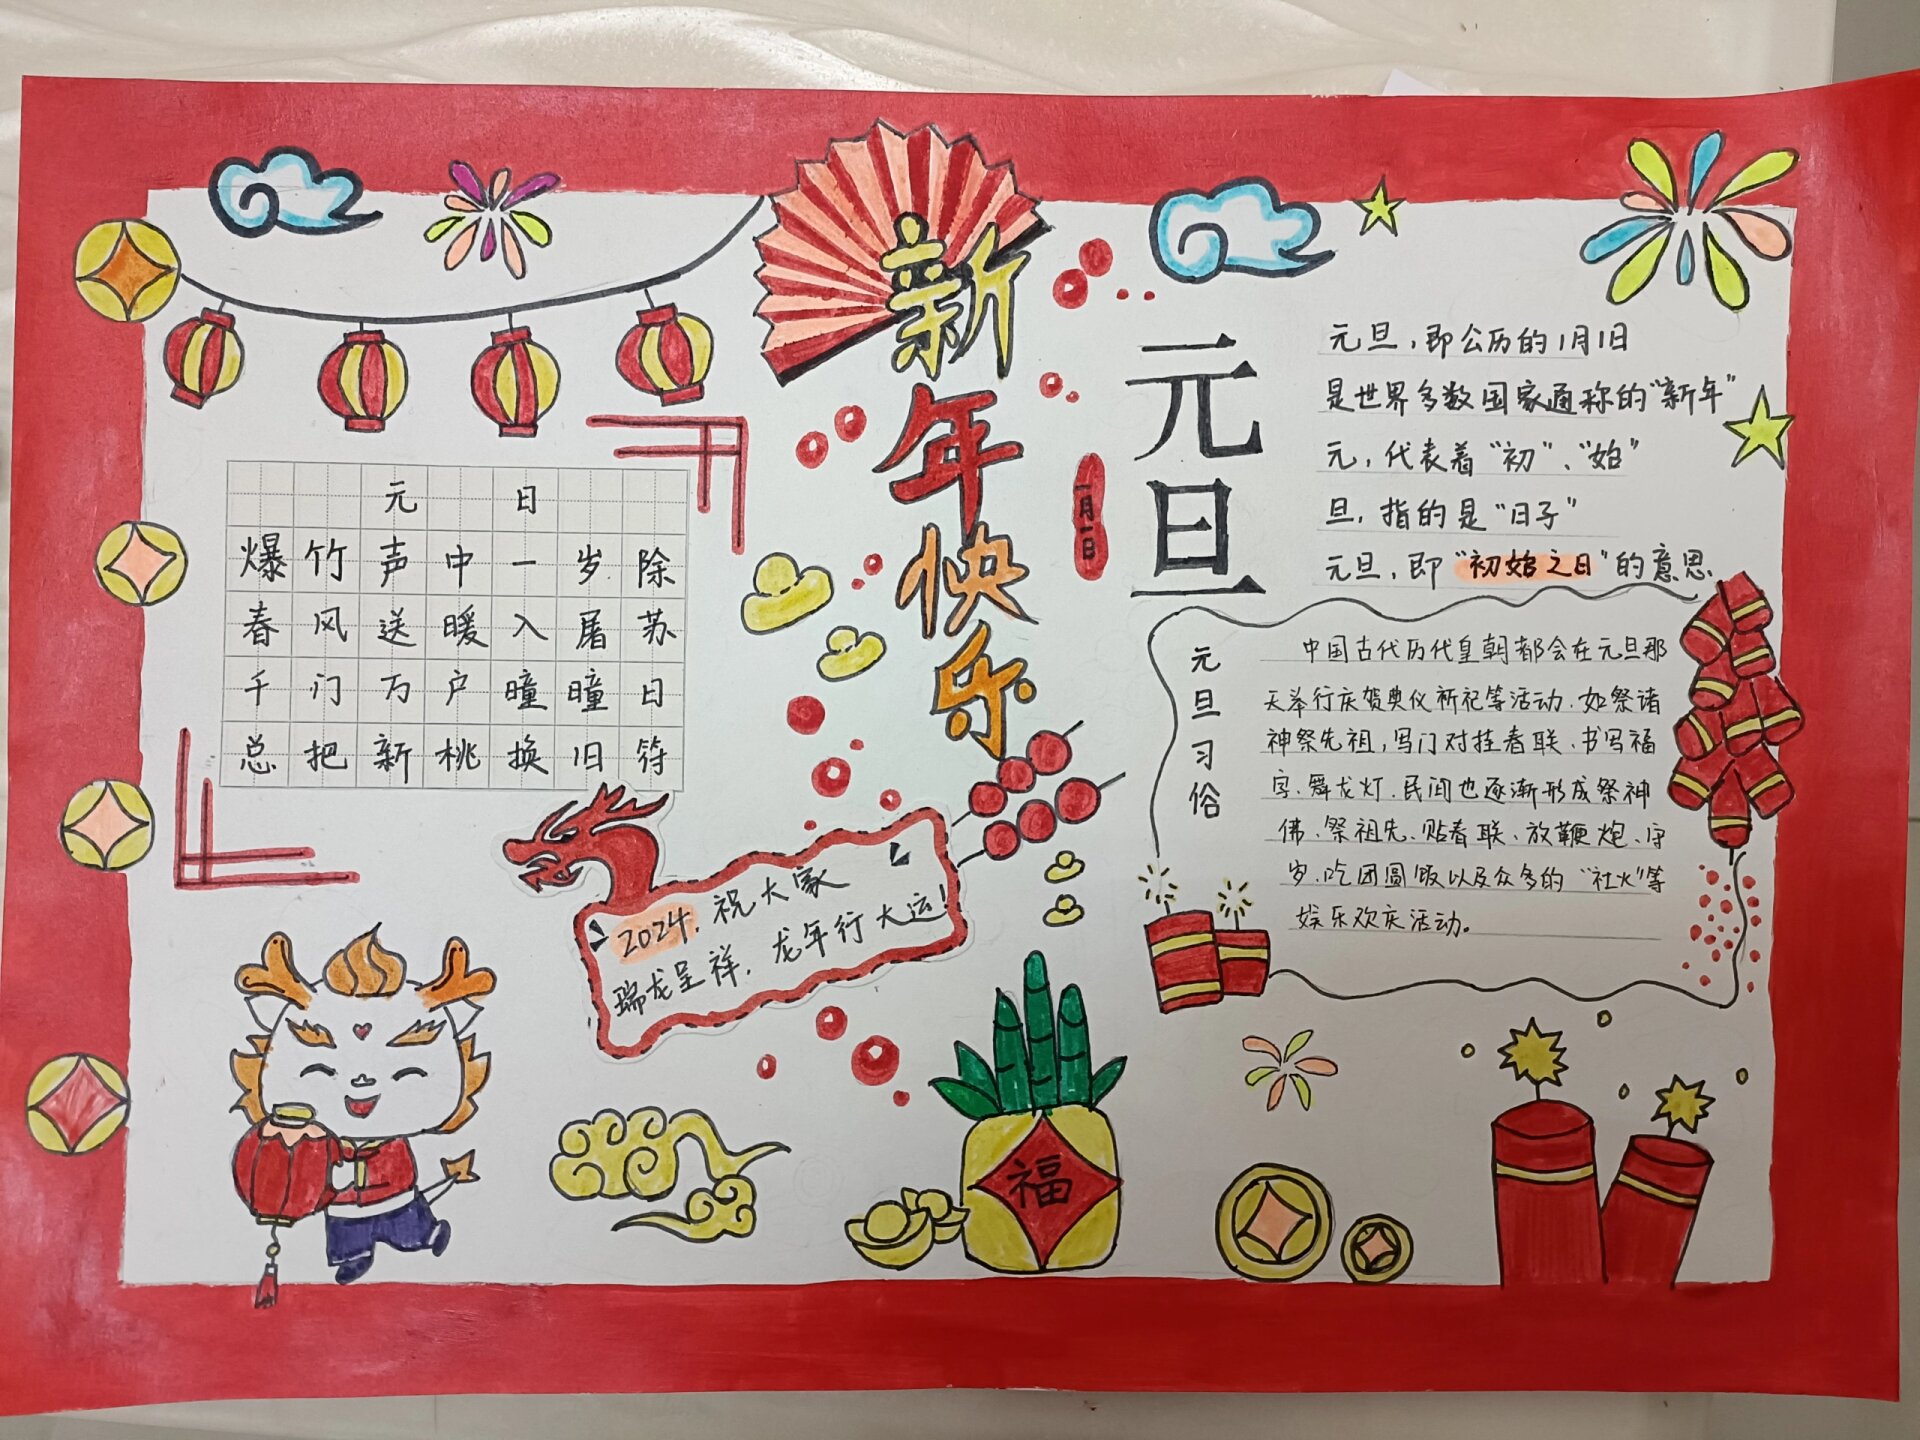 元日
爆竹声中一岁除
春风送暖入屠苏
千门万户曈曈日
总把新桃换旧符
新年快乐
一月一日
2024,祝大家
瑞龙呈祥,龙年行大运!
福
元旦
元旦,即公历的1月1日
是世界多数国家通称的“新年”
元,代表着“初”、“始”
旦,指的是“日子”
元旦,即“初始之日”的意思
元旦习俗
中国古代历代皇朝都会在元旦那
天举行庆贺典仪祈祀等活动、如祭诸
神祭先祖,写门对挂春联、书写福
字、舞龙灯、民间也逐渐形成祭神
佛、祭祖先、贴春联、放鞭炮、守
岁、吃团圆饭以及众多的“社火”等
娱乐欢庆活动。